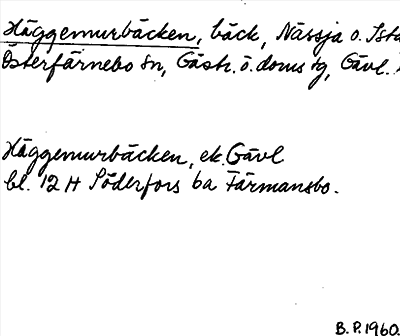 Häggemurbäcken, bäck, Nässja o. Ista
Österfärnebo sn, Gästr. ö. doms tg, Gävl.
Häggemurbäcken, ek. Gävl
bl. 12 H Söderfors ba Färmansbo.
B.P. 1960.